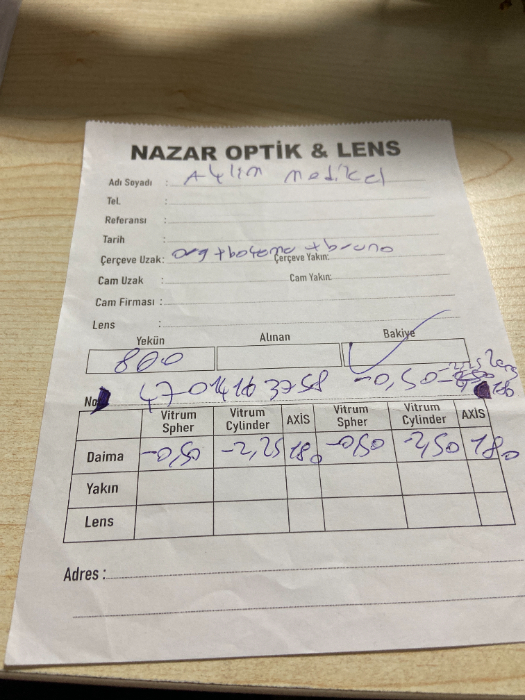 NAZAR OPTİK & LENS
Adı Soyadı : Aylın medikal
Tel. :
Referansı :
Tarih :
Çerçeve Uzak: org + boyama + bruno Çerçeve Yakın:
Cam Uzak : Cam Yakın:
Cam Firması :
Lens :
Yekün Alınan Bakiye
800
No 470141637 58 -0,50 lens
180
Vitrum Spher Vitrum Cylinder AXİS Vitrum Spher Vitrum Cylinder AXİS
Daima -0,50 -2,25 180 -0,50 -2,50 180
Yakın
Lens
Adres :